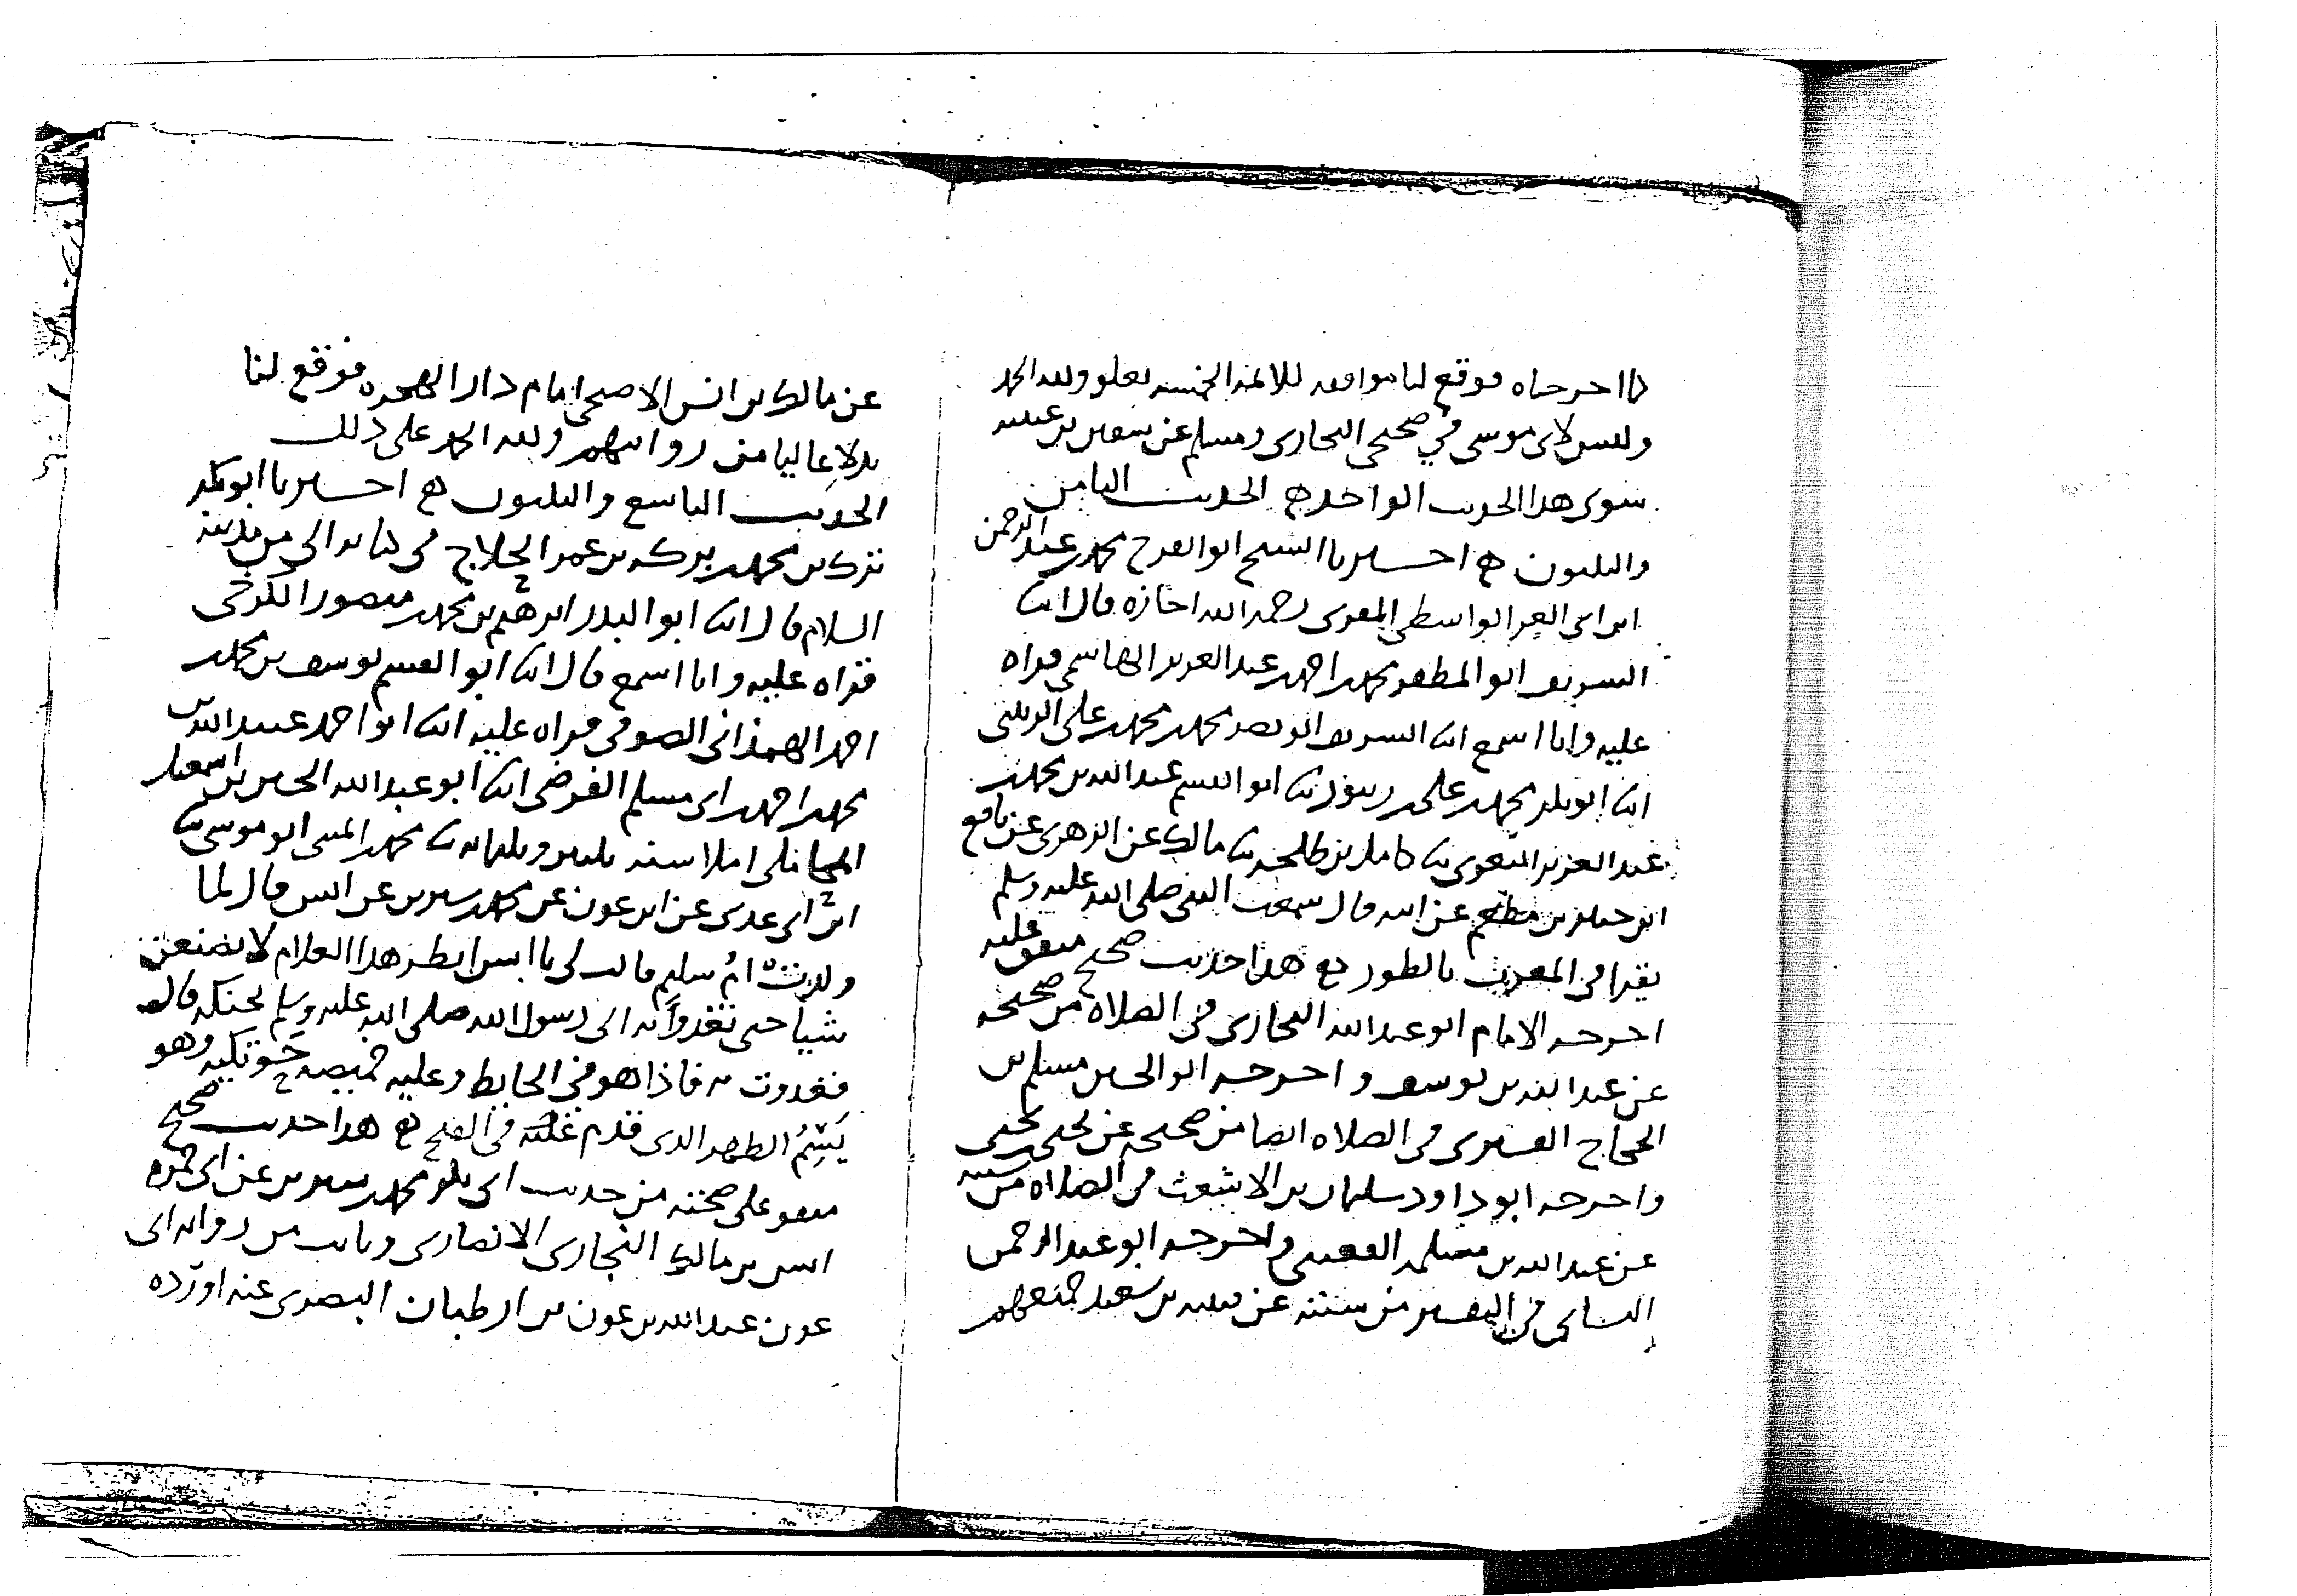 كما اخرجناه فوقع لنا موافقه للائمه الخمسه بعلو ولله الحمد
وليس لابى موسى في صحيحى البخارى ومسلم عن سفين بن عيينه
سوى هذا الحديث الواحد الحديث الثامن
والثلثون اخبرنا الشيخ ابو الفرج محمد بن عبد الرحمن
ابن ابى العز الواسطى المقرى رحمه الله اجازه قال انا
الشريف ابو المظفر محمد بن احمد بن عبد العزيز الهاشمى قراه
عليه وانا اسمع انا الشريف ابو نصر محمد بن محمد بن على الزينبى
انا ابو بكر محمد بن على بن ثنا ابو القسم عبد الله بن محمد بن
عبد العزيز البغوى ثنا كامل بن طلحه ثنا مالك عن الزهرى عن نافع
ابن جبير بن مطعم عن ابيه قال سمعت النبى صلى الله عليه وسلم
يقرا فى المغرب بالطور هذا حديث صحيح متفق عليه
اخرجه الامام ابو عبد الله البخارى فى الصلاه من صحيحه
عن عبد الله بن يوسف واخرجه ابو الحسين مسلم بن
الحجاج القشيرى فى الصلاه ايضا من صحيحه عن يحيى بن يحيى
واخرجه ابو داود سليمان بن الاشعث فى الصلاه من سننه
عن عبد الله بن مسلمه القعنبى واخرجه ابو عبد الرحمن
النسائى فى التفسير من سننه عن قتيبه بن سعيد جميعهم
عن مالك بن انس الاصبحى امام دار الهجره فوقع لنا
بدلا عاليا من روايتهم ولله الحمد على ذلك
الحديث التاسع والثلثون اخبرنا ابو بكر
ترك بن محمد بن بركه بن عمر الحلاج فى كتابه الى من مدينه
السلام قال انا ابو البدر ابرهيم بن محمد بن منصور الكرخى
قراه عليه وانا اسمع قال انا ابو القسم يوسف بن محمد بن
احمد الهمذانى الصوفى قراه عليه انا ابو احمد عبيد الله بن
محمد بن احمد بن ابى مسلم الفرضى انا ابو عبد الله الحسين بن اسمعيل
المحاملى املا سنه ثلثين وثلثمائه ثنا محمد بن المثنى ابو موسى ثنا
ابن ابى عدى عن ابن عون عن محمد بن سيرين عن انس قال لما
ولدت ام سليم قالت لى يا انس انظر هذا الغلام لا يصنعن
شيا حتى تغدوا به الى رسول الله صلى الله عليه وسلم يحنكه قال
فغدوت به فاذا هو فى الحايط وعليه خميصه حوتكيه وهو
يسم الظهر الذى قدم عليه فى الفتح هذا حديث صحيح
متفق على صحته من حديث ابى بكر محمد بن سيرين عن ابى حمزه
انس بن مالك النجارى الانصارى وثابت من روايه ابى
عون عبد الله بن عون بن ارطبان البصرى عنه اورده